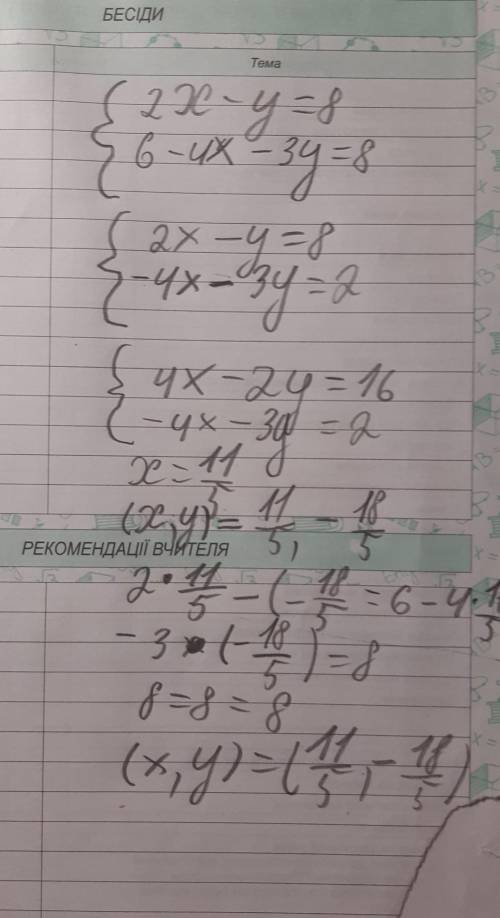 БЕСІДИ
Тема
2x - y = 8
6 - 4x - 3y = 8
2x - y = 8
-4x - 3y = 2
4x - 2y = 16
-4x - 3y = 2
x = 11/5
(x,y) = 11/5, - 18/5
РЕКОМЕНДАЦІЇ ВЧИТЕЛЯ
2 · 11/5 - (- 18/5 = 6 - 4 ·
- 3 · (- 18/5) = 8
8 = 8 = 8
(x, y) = (11/5, - 18/5)